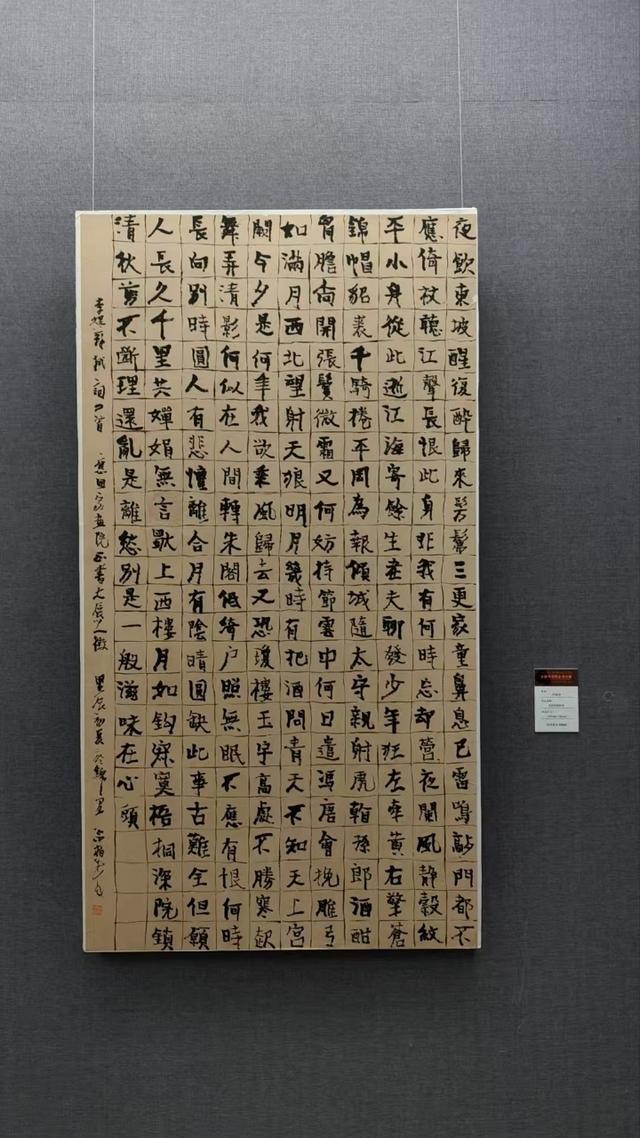 夜飲東坡醒復醉歸來髣髴三更家童鼻息已雷鳴敲門都不
應倚杖聽江聲長恨此身非我有何時忘却營夜闌風靜縠紋
平小舟從此逝江海寄餘生老夫聊發少年狂左牽黃右擎蒼
錦帽貂裘千騎捲平岡為報傾城隨太守親射虎看孫郎酒酣
胷膽尚開張鬢微霜又何妨持節雲中何日遣馮唐會挽雕弓
如滿月西北望射天狼明月幾時有把酒問青天不知天上宮
闕今夕是何年我欲乘風歸去又恐瓊樓玉宇高處不勝寒起
舞弄清影何似在人間轉朱閣低綺户照無眠不應有恨何時
長向別時圓人有悲懽離合月有陰晴圓缺此事古難全但願
人長久千里共嬋娟無言獨上西樓月如鈎寂寞梧桐深院鎖
清秋剪不斷理還亂是離愁別是一般滋味在心頭
李煜蘇軾詞四首